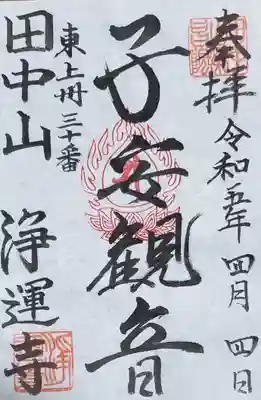 奉拝
令和五年四月四日
子安観音
東上州三十番
田中山 浄運寺